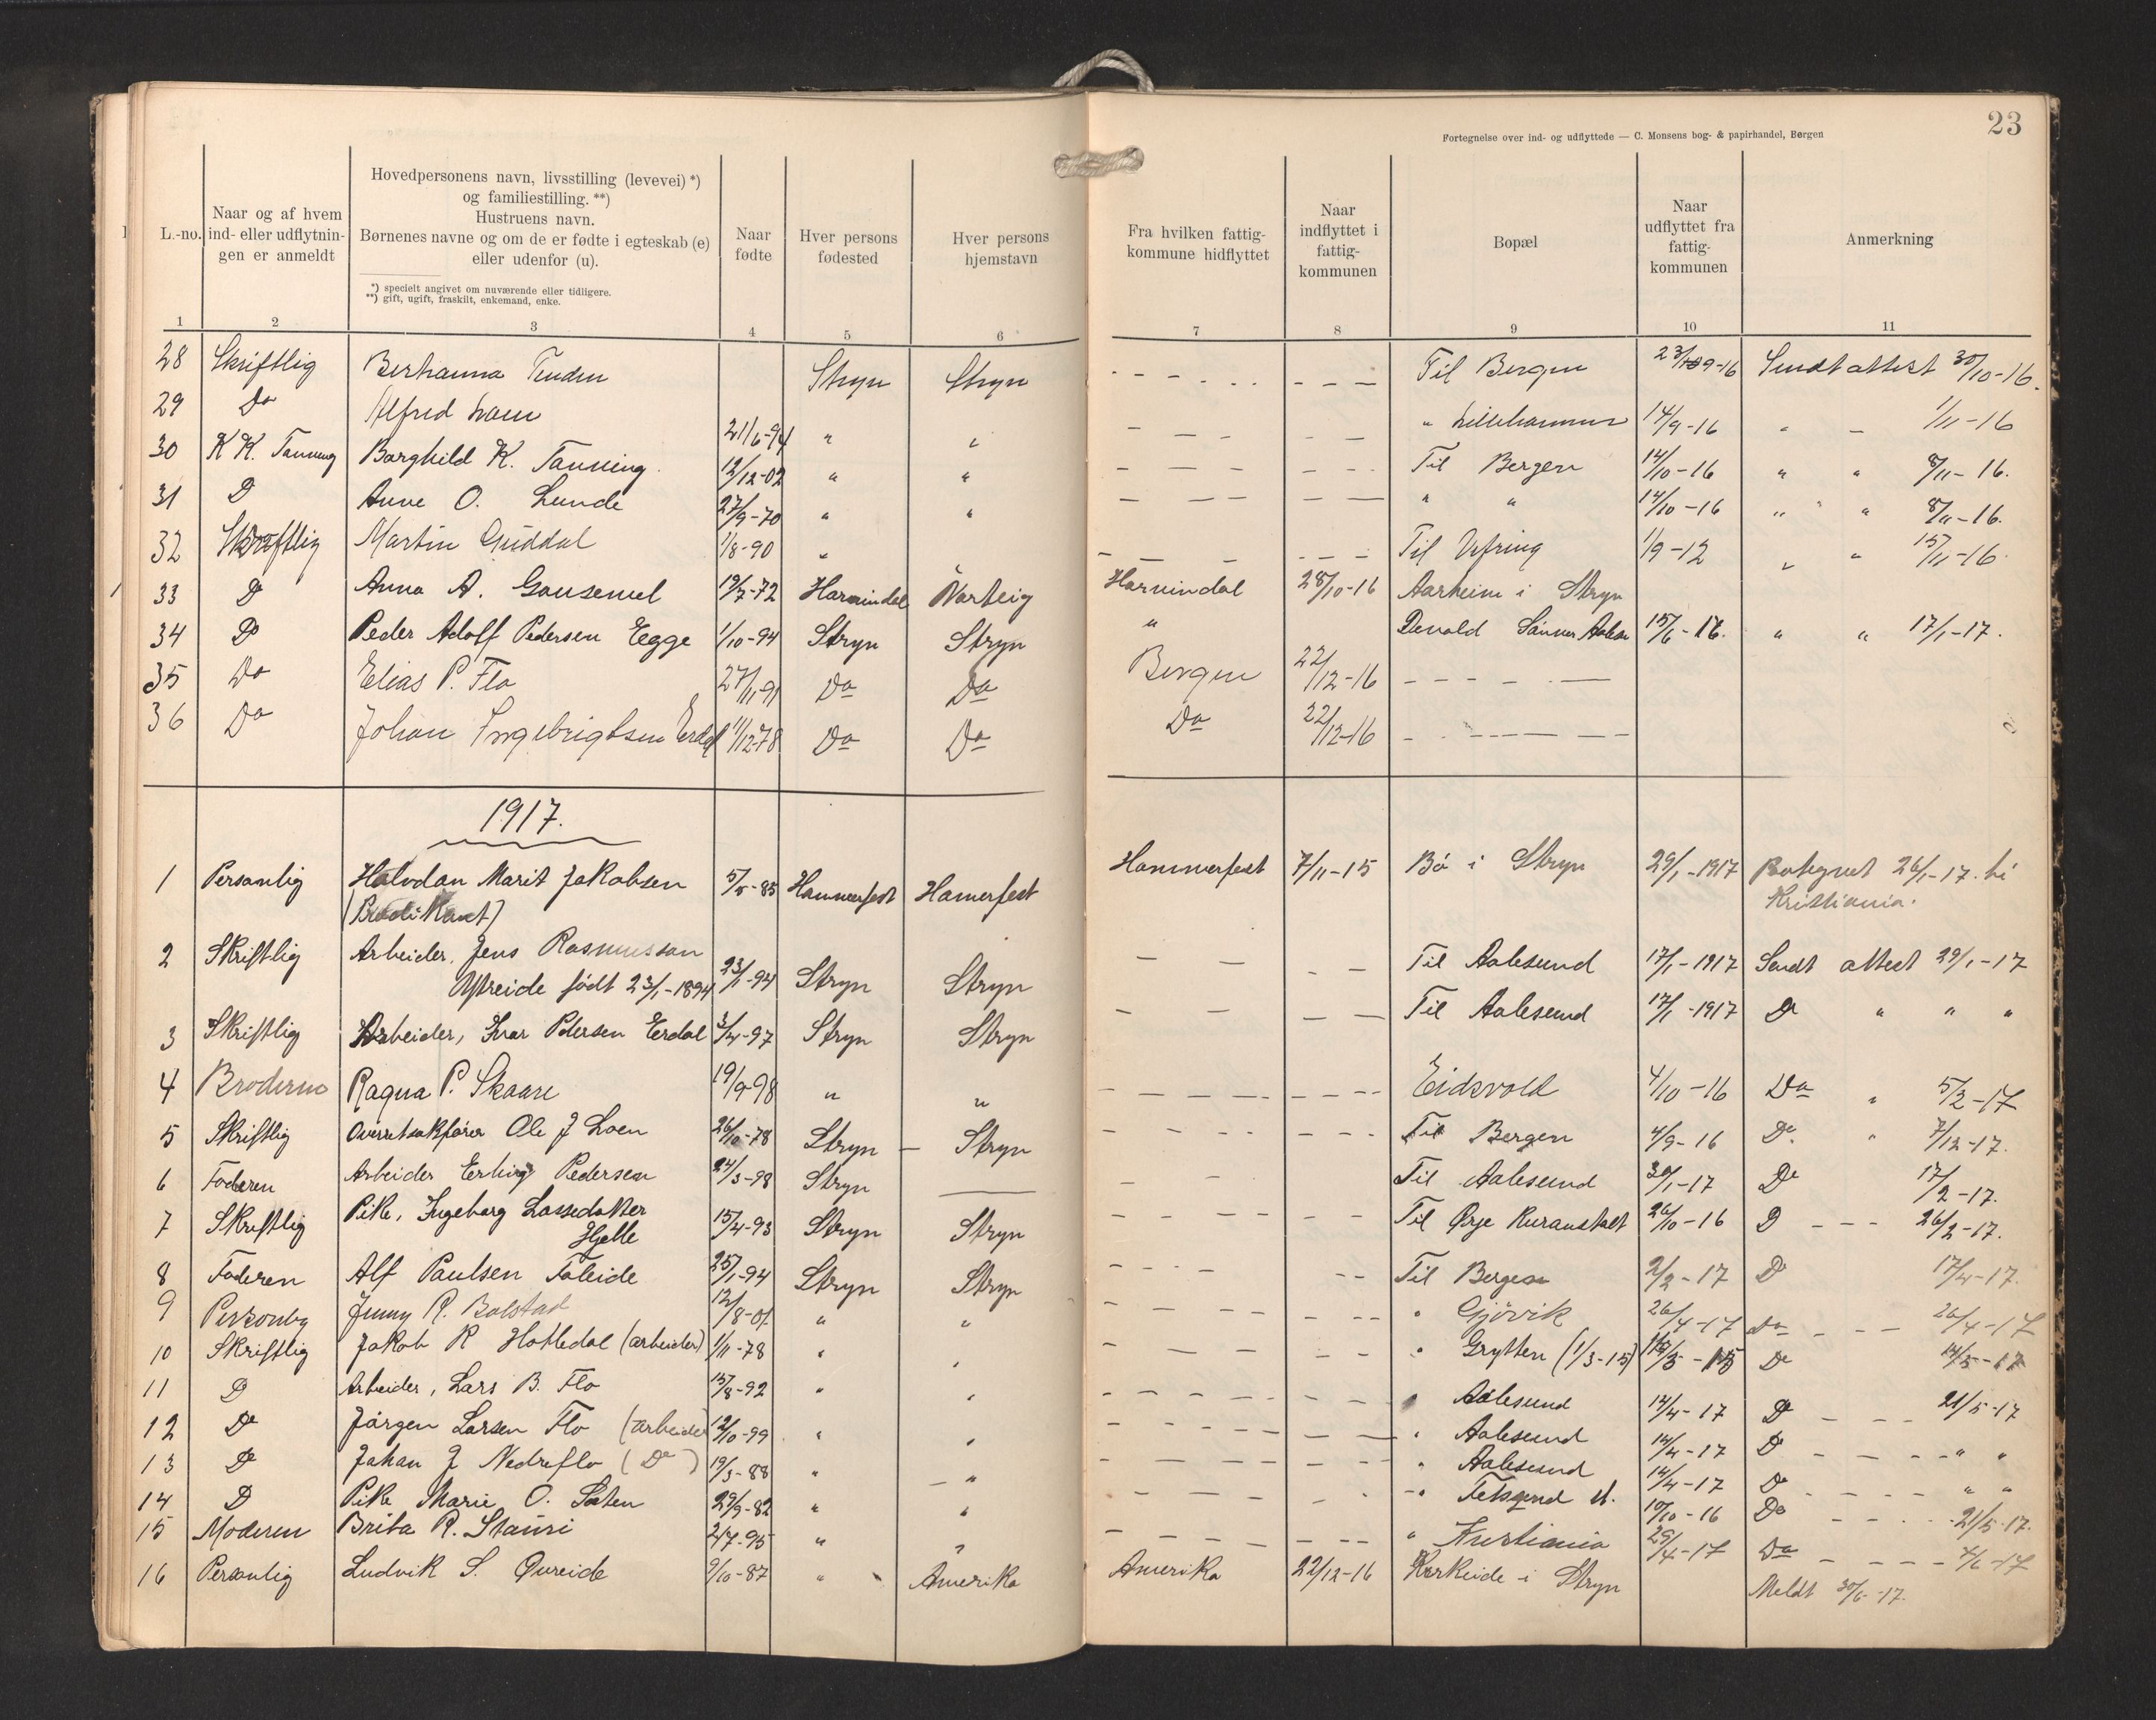 23
Fortegnelse over ind- og udflyttede — C. Monsens bog- & papirhandel, Bergen
L.-no.
Naar og af hvem ind- eller udflytnin-gen er anmeldt
Hovedpersonens navn, livsstilling (levevei) *)
og familiestilling. **)
Hustruens navn.
Børnenes navne og om de er fødte i egteskab (e)
eller udenfor (u).
*) specielt angivet om nuværende eller tidligere.
**) gift, ugift, fraskilt, enkemand, enke.
Naar fødte
Hver persons fødested
Hver persons hjemstavn
Fra hvilken fattig-kommune hidflyttet
Naar indflyttet i fattig-kommunen
Bopæl
Naar udflyttet fra fattig-kommunen
Anmerkning
1 2 3 4 5 6 7 8 9 10 11
28 Skriftlig Berhanna Tenden Stryn Stryn - - - - - - Til Bergen 9-16 Sendt attest 30/10-16.
29 Do Alfred Loen 21/6-94 " " - - - - - " Lillehammer 14/9-16 " - 1/11-16
30 K K. Tanning Borghild K. Tanning. 12/12-02 " " - - - - - - Til Bergen 14/10-16 " " 8/11-16.
31 D Anne O. Lunde 27/9-70 " " - - - - - " " 14/10-16 " " 8/11-16.
32 Skriftlig Martin Guddal 1/8-90 " - - - - - - Til Vefring 1/9-12 " " 15/11-16.
33 D Anna A. Gausemel 19/7-72 Hornindal Varteig Hornindal 28/10-16 Aarheim i Stryn
34 Do Peder Adolf Pedersen Eegge 1/10-94 Stryn Stryn " Devold 15/6-16. " " 17/1-17.
35 Do Elias P. Flo 27/11-91 Do Do Bergen 22/12-16 - - - - -
36 Do Johan Ingebrigtsen Erdal 11/12-78 Do Do Do 22/12-16 - - - - -
1917.
1 Personlig Halvdan Marit Jakobsen 5/5-85 Hammerfest Hamerfest Hammerfest 7/11-15 Bö i Stryn 29/1-1917 26/1-17. til
(Prædikant) Kristiania.
2 Skriftlig Arbeider, Jens Rasmusson
Ytreide født 23/1-1894 23/1-94 Stryn Stryn - - - - Til Aalesund 17/1-1917 Sendt attest 29/1-17
3 Skriftlig Arbeider, Ivar Pedersen Erdal 3/4-97 Stryn Stryn - - - - Til Aalesund 17/1-1917 Do " " "
4 Broderen Ragna P. Skaare 19/9-98 " " - - - - - - Eidsvold 4/10-16 Do " 5/2-17
5 Skriftlig Overretsakfører Ole J Loen 26/10-78 Stryn - Stryn - - - - - - Til Bergen 4/9-16 Do " 7/12-17.
6 Faderen Arbeider Erling Pedersen 24/3-98 Stryn — - - Til Aalesund 30/1-17 Do 17/2-17.
7 Skriftlig Pike, Ingeborg Lassedatter
Hjelle 15/4-93 Stryn Stryn - - - - - - Til Ørje Kuranstalt 26/10-16 D - - - 26/2-17.
8 Faderen Alf Paulsen Faleide 25/1-94 Stryn Stryn - - - - - Til Bergen 2/2-17 D 17/4-17.
9 Personlig Jenny R. Bolstad 12/8-01 " " - - - - - - " Gjövik 26/4-17 Do - - - 26/4-17
10 Skriftlig Jakob R Hotledal (arbeider) 1/11-78 " " - - - - - " Grytten (1/3-15) Do 14/5-17
11 D Arbeider, Lars B. Flo 15/8-92 " " - - - - - - Aalesund 14/4-17 Do - - - 21/5-17
12 Do Jørgen Larsen Flo (arbeider 12/10-99 " " - - - - - - " Aalesund 14/4-17 D - - - " "
13 Do Johan J Nedreflo (Do) 19/3-88 " " - - - - - - " Aalesund 14/4-17 D - - - " "
14 D Pike Marie O. Sæten 29/9-82 " " - - - - - " Fetsund st. 10/10-16 Do - - - 21/5-17.
15 Moderen Brita R. Stauri 2/7-95 " " - - - - - - " Kristiania 29/4-17 Do - - - 4/6-17
16 Personlig Ludvik S. Øvreide 9/10-87 " Amerika Amerika 22/12-16 i Stryn Meldt 30/6-17.